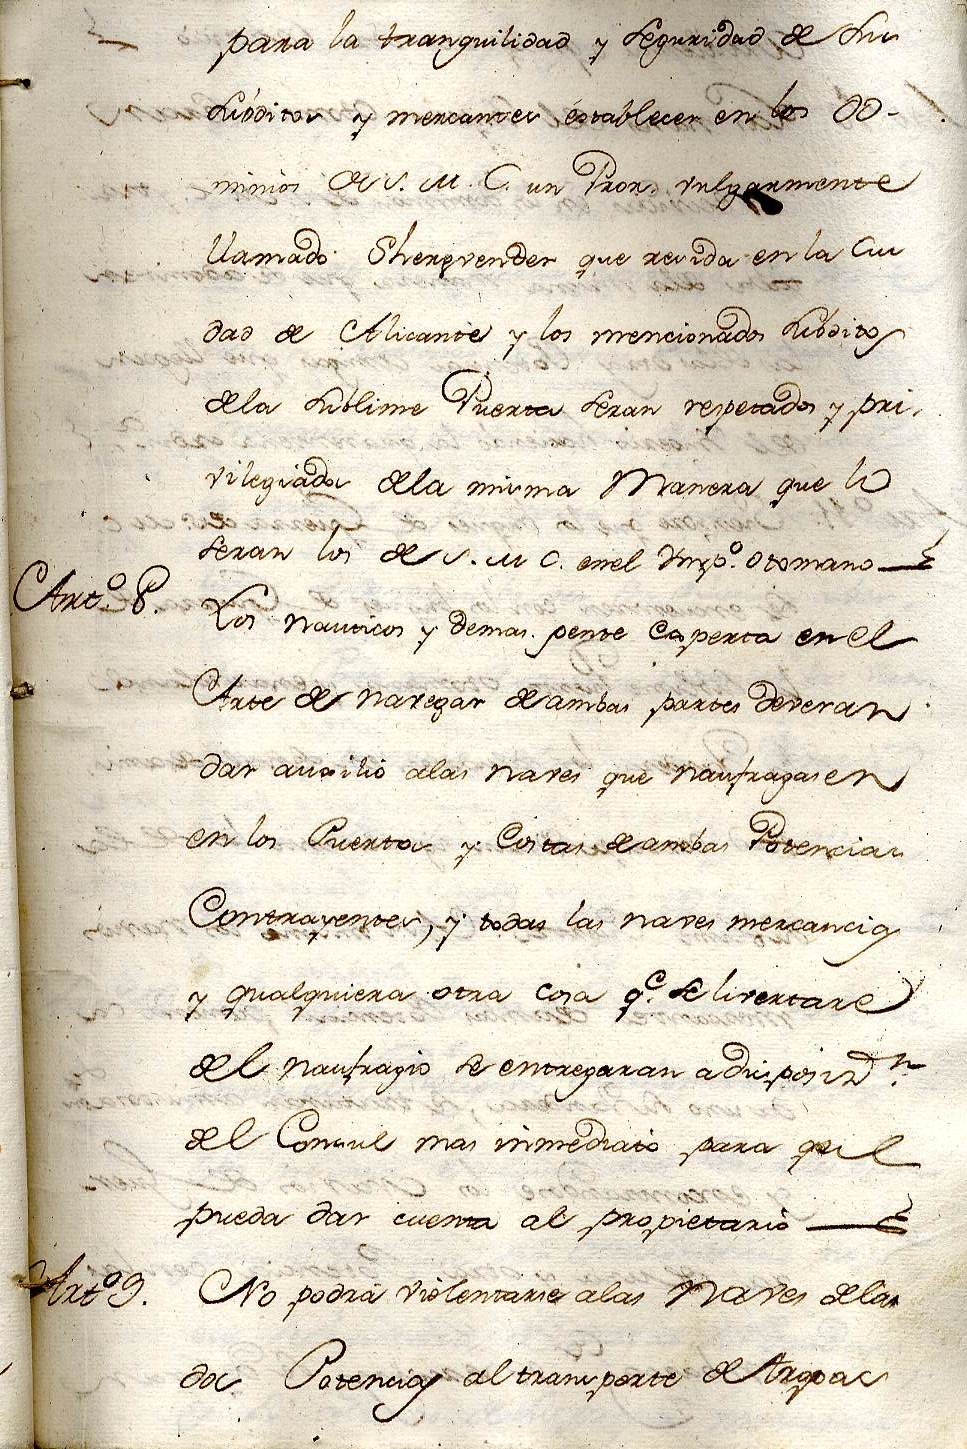 para la tranquilidad y seguridad de sus
súbditos y mercantes establecer en los Do-
minios de S. M. C. un Pror. vulgarmente
llamado Shergvender que resida en la Ciu
dad de Alicante y los mencionados súbditos
dela sublime Puerta seran respetados y pri-
vilegiados dela misma Manera que lo
seran los de S. M. C. en el Impo. Otomano
Arto. 8. Los nauticos y demas gente esperta en el
Arte de navegar de ambas partes deveran
dar auxilio alas naves que naufragasen
en los Puertos y Costas de ambas Potencias
Contrayentes, y todas las naves mercancias
y qualquiera otra cosa qe. se livertare
del naufragio se entregaran a disposion.
del Consul mas inmediato para que el
pueda dar cuenta al propietario
Arto. 9. No podrá violentarse alas Naves delas
dos Potencias al transporte de Tropas